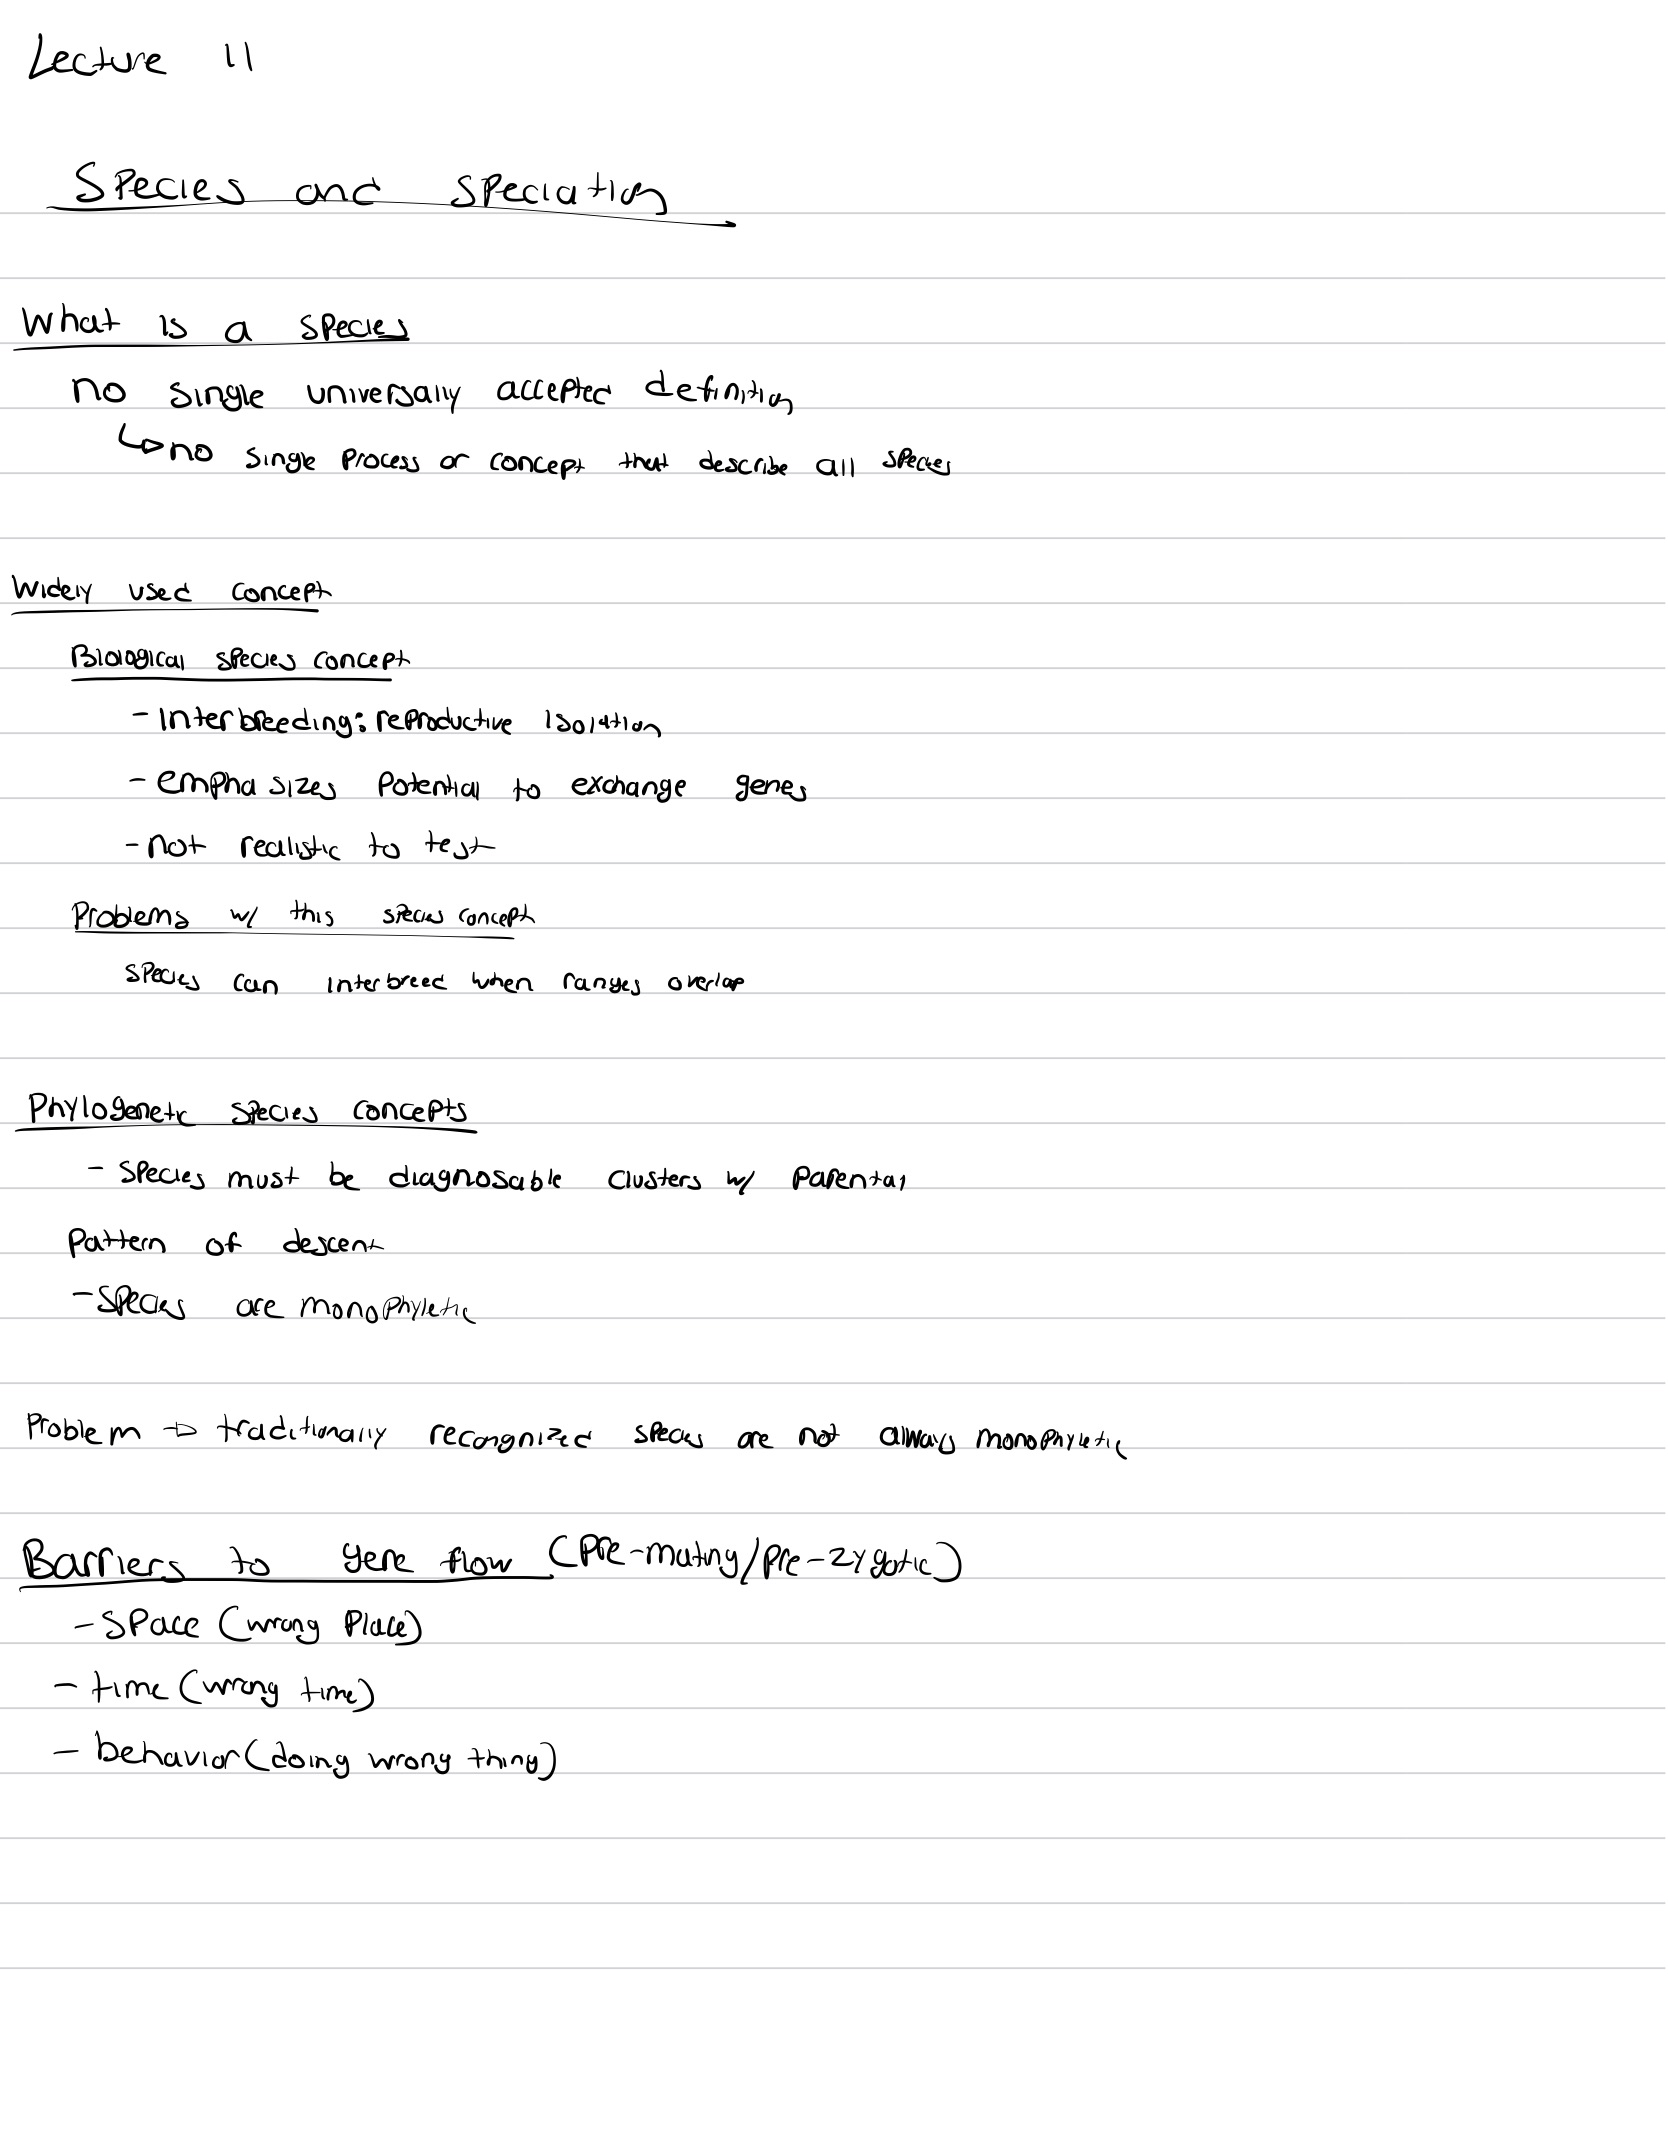 Lecture 11
Species and speciation
What is a species
no single universally accepted definition
↳ no single process or concept that describe all species
Widely used concept
Biological species concept
- Interbreeding: reproductive isolation
- emphasizes potential to exchange genes
- not realistic to test
Problems w/ this species concept
species can interbreed when ranges overlap
Phylogenetic species concepts
- species must be diagnosable clusters w/ parental
pattern of descent
- species are monophyletic
Problem → traditionally recognized species are not always monophyletic
Barriers to gene flow (pre-mating/pre-zygotic)
- space (wrong place)
- time (wrong time)
- behavior (doing wrong thing)